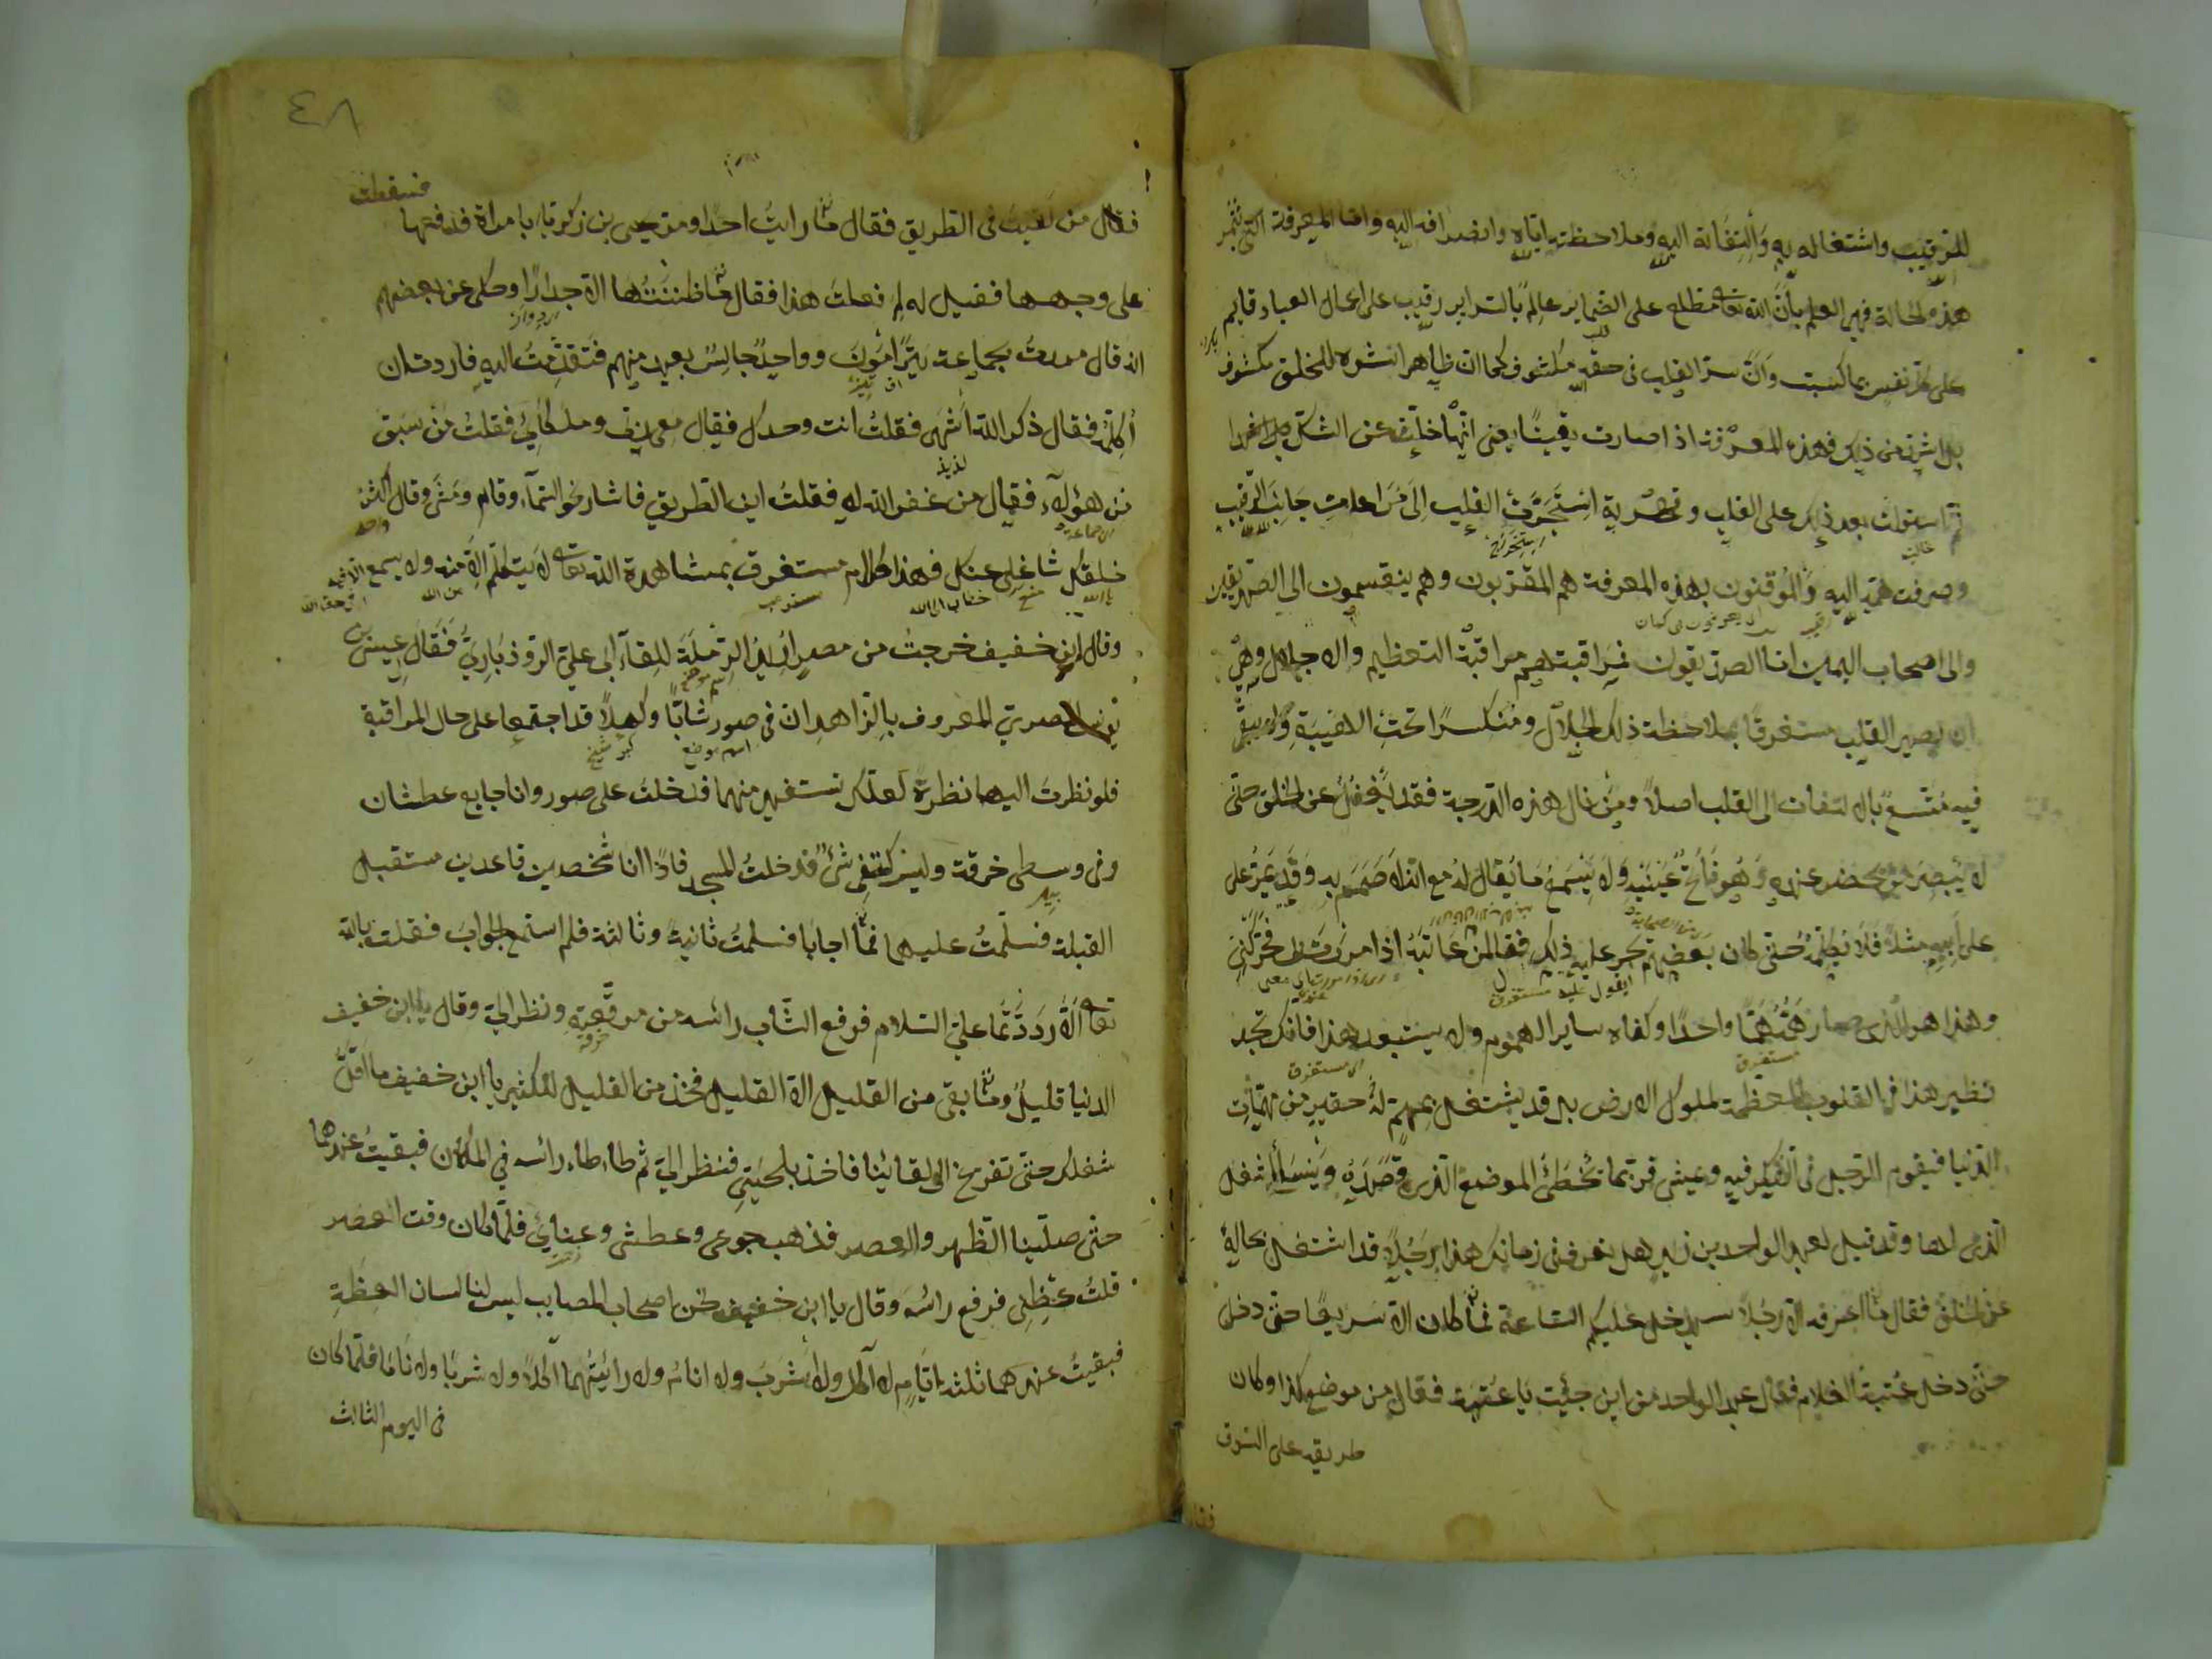 للرقيب واشتغاله به والتفاته اليه وملاحظته اياه وانصرافه اليه واما المعرفة التي تثمر
هذه الحالة فهي العلم بان الله تعالى مطلع على الضماير عالم بالسراير رقيب على اعمال العباد قايم
على كل نفس بما كسبت وان سر القلب في حقه مكشوف كما ان ظاهر البشرة للخلق مكشوف
بل اشد من ذلك فهذه المعرفة اذا صارت يقينا يعني انها خلت عن الشك
ثم استولت بعد ذلك على القلب وقهرته استجرت القلب الى مراعات جانب الرقيب
وصرفت همه اليه والموقنون بهذه المعرفة هم المقربون وهم ينقسمون الى الصديقين
والى اصحاب اليمين اما الصديقون فمراقبتهم مراقبة التعظيم والاجلال وهي
ان يصير القلب مستغرقا بملاحظة ذلك الجلال ومنكسرا تحت الهيبة ولا يبقى
فيه متسع بالالتفات الى القلب اصلا ومن نال هذه الدرجة فقد يغفل عن الخلق حتى
لا يبصر من يحضر عنده وهو فاتح عينيه ولا يسمع ما يقال له مع انه لا صمم به وقد يمر على
على ابنه مثلا فلا يكلمه حتى كان بعضهم يجري عليه ذلك فقال لمن عاتبه اذا مررت بي فحركني
وهذا هو الذي صار همه هما واحدا وكفاه ساير الهموم ولا يستبعد هذا فانك تجد
نظير هذا في القلوب المعظمة لملوك الارض بل قد يشتغل بمهم له حقير من مهمات
الدنيا فيقوم الرجل في التفكر فيه ويمشي فربما تخطى الموضع الذي قصده وينسى الشغل
الذي لها وقد قيل لعبد الواحد بن زيد هل تعرف في زمانك هذا رجلا قد اشتغل بحاله
عن الخلق فقال ما اعرفه الا رجلا سيدخل عليكم الساعة فما كان الا سريعا حتى دخل
حتى دخل عتبة الغلام فقال عبد الواحد من اين جئت يا عتبة فقال من موضع كذا وكان
طريقه على السوق
٤٨
فسقطت
فقال من لقيت في الطريق فقال ما رايت احدا ومر يحيى بن زكريا بامراة فدفعها
على وجهها فقيل له لم فعلت هذا فقال ما ظننتها الا جدارا وحكي عن بعضهم
انه قال مررت بجماعة يترامون وواحد جالس بعيد منهم فتقدمت اليه فاردت ان
اكلمه فقال ذكر الله اشهى فقلت انت وحدك فقال معي ربي وملكاي فقلت من سبق
من هؤلاء فقال من غفر الله له فقلت اين الطريق فاشار نحو السماء وقام ومشى وقال اكثر
خلقك شاغل عنك فهذا كلام مستغرق بمشاهدة الله تعالى لا يتكلم الا منه ولا يسمع الا فيه
وقال ابن خفيف خرجت من مصر اريد الرملة للقاء ابي علي الروذباري فقال عيسى بن
يونس المصري المعروف بالزاهد ان في صور شابا وكهلا قد اجتمعا على حال المراقبة
فلو نظرت اليهما نظرة لعلك تستفيد منهما فدخلت على صور وانا جايع عطشان
وفي وسطي خرقة وليس كتفي شئ فدخلت المسجد فاذا انا شخصين قاعدين مستقبل
القبلة فسلمت عليهما فما اجابا فسلمت ثانية وثالثة فلم استمع الجواب فقلت بالله
تعالى الا رددتما علي السلام فرفع الشاب راسه من مرقعته ونظر الي وقال يا ابن خفيف
الدنيا قليل وما بقي من القليل الا القليل فخذ من القليل للكثير يا ابن خفيف ما اقل
شغلك حتى تفرغ الى لقائنا فاخذ بلحيتي فنظر الي ثم طاطا راسه في المكان فبقيت عندهما
حتى صلينا الظهر والعصر فذهب جوعي وعطشي وعنائي فلما كان وقت العصر
قلت عظني فرفع راسه وقال يا ابن خفيف نحن اصحاب المصايب ليس لنا لسان العظة
فبقيت عندهما ثلثة ايام لا آكل ولا اشرب ولا انام ولا رايتهما اكلا ولا شربا ولا ناما فلما كان
في اليوم الثالث